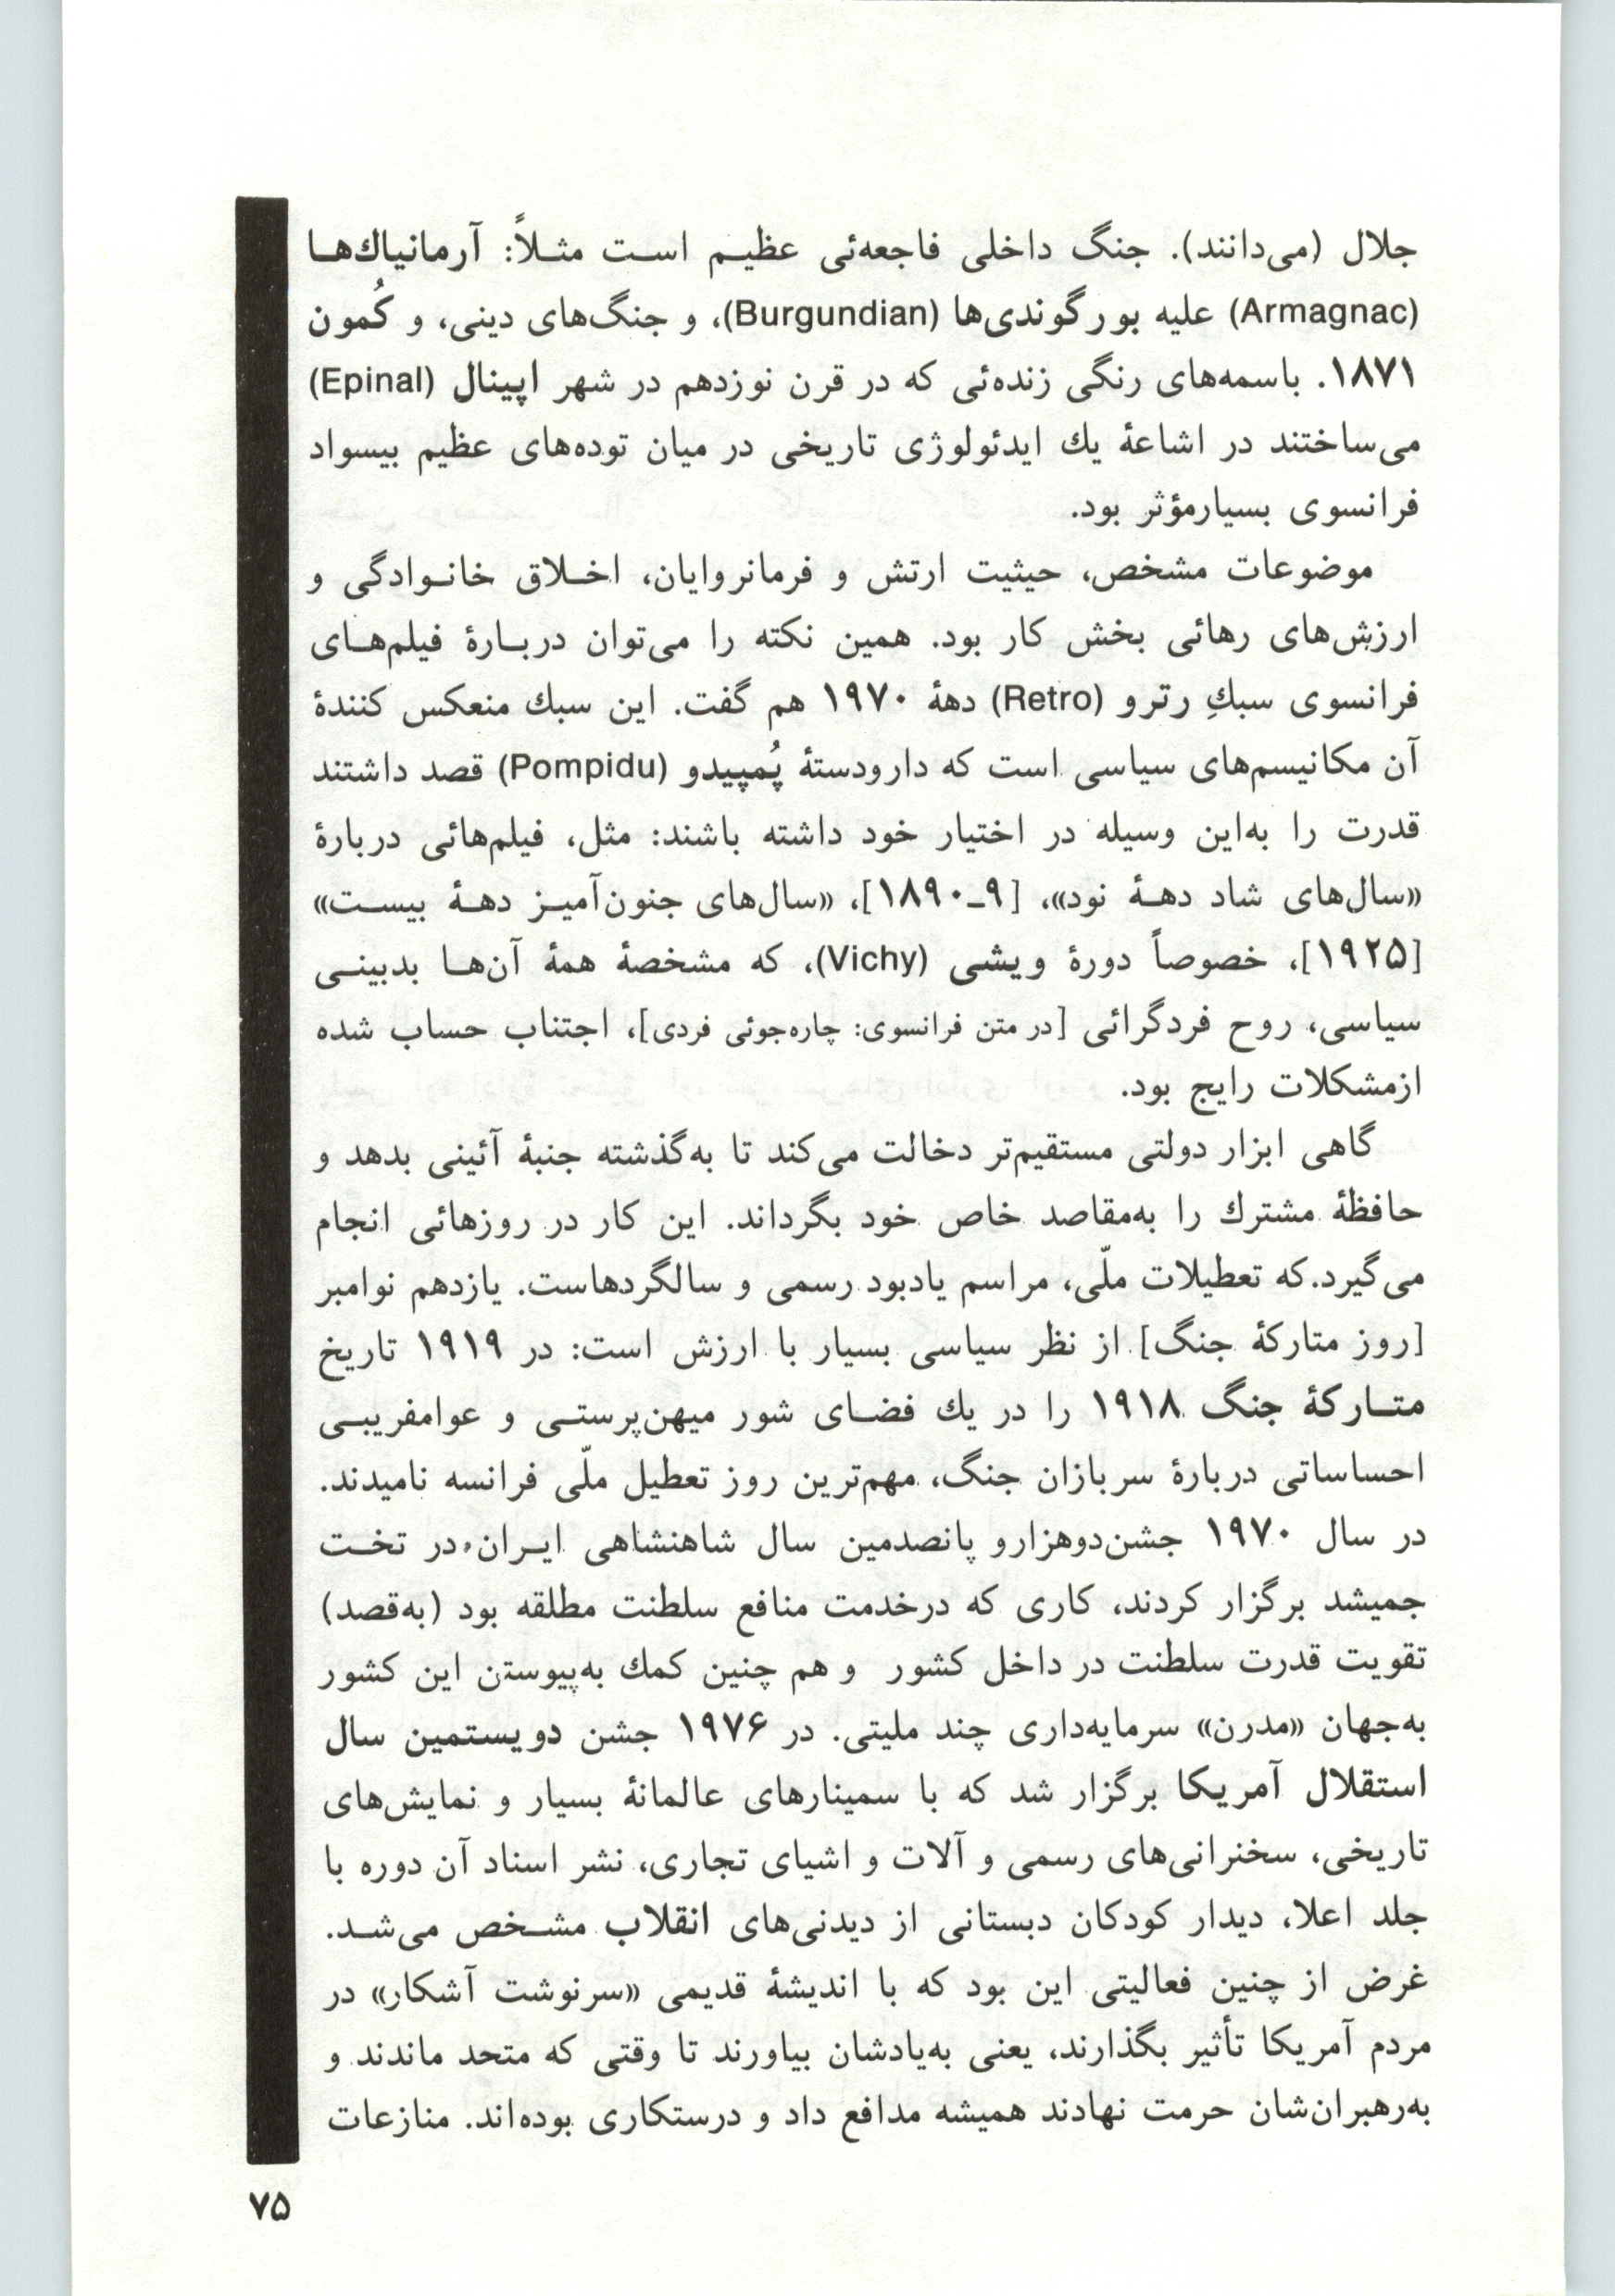 جلال (می‌دانند). جنگ داخلی فاجعه‌ئی عظیم است مثلاً: آرمانیاك‌ها
(Armagnac) علیه بورگوندی‌ها (Burgundian)، و جنگ‌های دینی، و کُمون
۱۸۷۱. باسمه‌های رنگی زنده‌ئی که در قرن نوزدهم در شهر اپینال (Epinal)
می‌ساختند در اشاعهٔ یك ایدئولوژی تاریخی در میان توده‌های عظیم بیسواد
فرانسوی بسیارمؤثر بود.
موضوعات مشخص، حیثیت ارتش و فرمانروایان، اخلاق خانوادگی و
ارزش‌های رهائی بخش کار بود. همین نکته را می‌توان دربارهٔ فیلم‌های
فرانسوی سبكِ رترو (Retro) دههٔ ۱۹۷۰ هم گفت. این سبك منعکس کنندهٔ
آن مکانیسم‌های سیاسی است که دارودستهٔ پُمپیدو (Pompidu) قصد داشتند
قدرت را به‌این وسیله در اختیار خود داشته باشند: مثل، فیلم‌هائی دربارهٔ
«سال‌های شاد دههٔ نود»، [۹ـ۱۸۹۰]، «سال‌های جنون‌آمیز دههٔ بیست»
[۱۹۲۵]، خصوصاً دورهٔ ویشی (Vichy)، که مشخصهٔ همهٔ آن‌ها بدبینی
سیاسی، روح فردگرائی [در متن فرانسوی: چاره‌جوئی فردی]، اجتناب حساب شده
ازمشکلات رایج بود.
گاهی ابزار دولتی مستقیم‌تر دخالت می‌کند تا به‌گذشته جنبهٔ آئینی بدهد و
حافظهٔ مشترك را به‌مقاصد خاص خود بگرداند. این کار در روزهائی انجام
می‌گیرد.که تعطیلات ملّی، مراسم یادبود رسمی و سالگردهاست. یازدهم نوامبر
[روز متارکهٔ جنگ] از نظر سیاسی بسیار با ارزش است: در ۱۹۱۹ تاریخ
متارکهٔ جنگ ۱۹۱۸ را در یك فضای شور میهن‌پرستی و عوامفریبی
احساساتی دربارهٔ سربازان جنگ، مهم‌ترین روز تعطیل ملّی فرانسه نامیدند.
در سال ۱۹۷۰ جشن‌دوهزارو پانصدمین سال شاهنشاهی ایران در تخت
جمیشد برگزار کردند، کاری که درخدمت منافع سلطنت مطلقه بود (به‌قصد)
تقویت قدرت سلطنت در داخل کشور و هم چنین کمك به‌پیوستن این کشور
به‌جهان «مدرن» سرمایه‌داری چند ملیتی. در ۱۹۷۶ جشن دویستمین سال
استقلال آمریکا برگزار شد که با سمینارهای عالمانهٔ بسیار و نمایش‌های
تاریخی، سخنرانی‌های رسمی و آلات و اشیای تجاری، نشر اسناد آن دوره با
جلد اعلا، دیدار کودکان دبستانی از دیدنی‌های انقلاب مشخص می‌شد.
غرض از چنین فعالیتی این بود که با اندیشهٔ قدیمی «سرنوشت آشکار» در
مردم آمریکا تأثیر بگذارند، یعنی به‌یادشان بیاورند تا وقتی که متحد ماندند و
به‌رهبران‌شان حرمت نهادند همیشه مدافع داد و درستکاری بوده‌اند. منازعات
۷۵